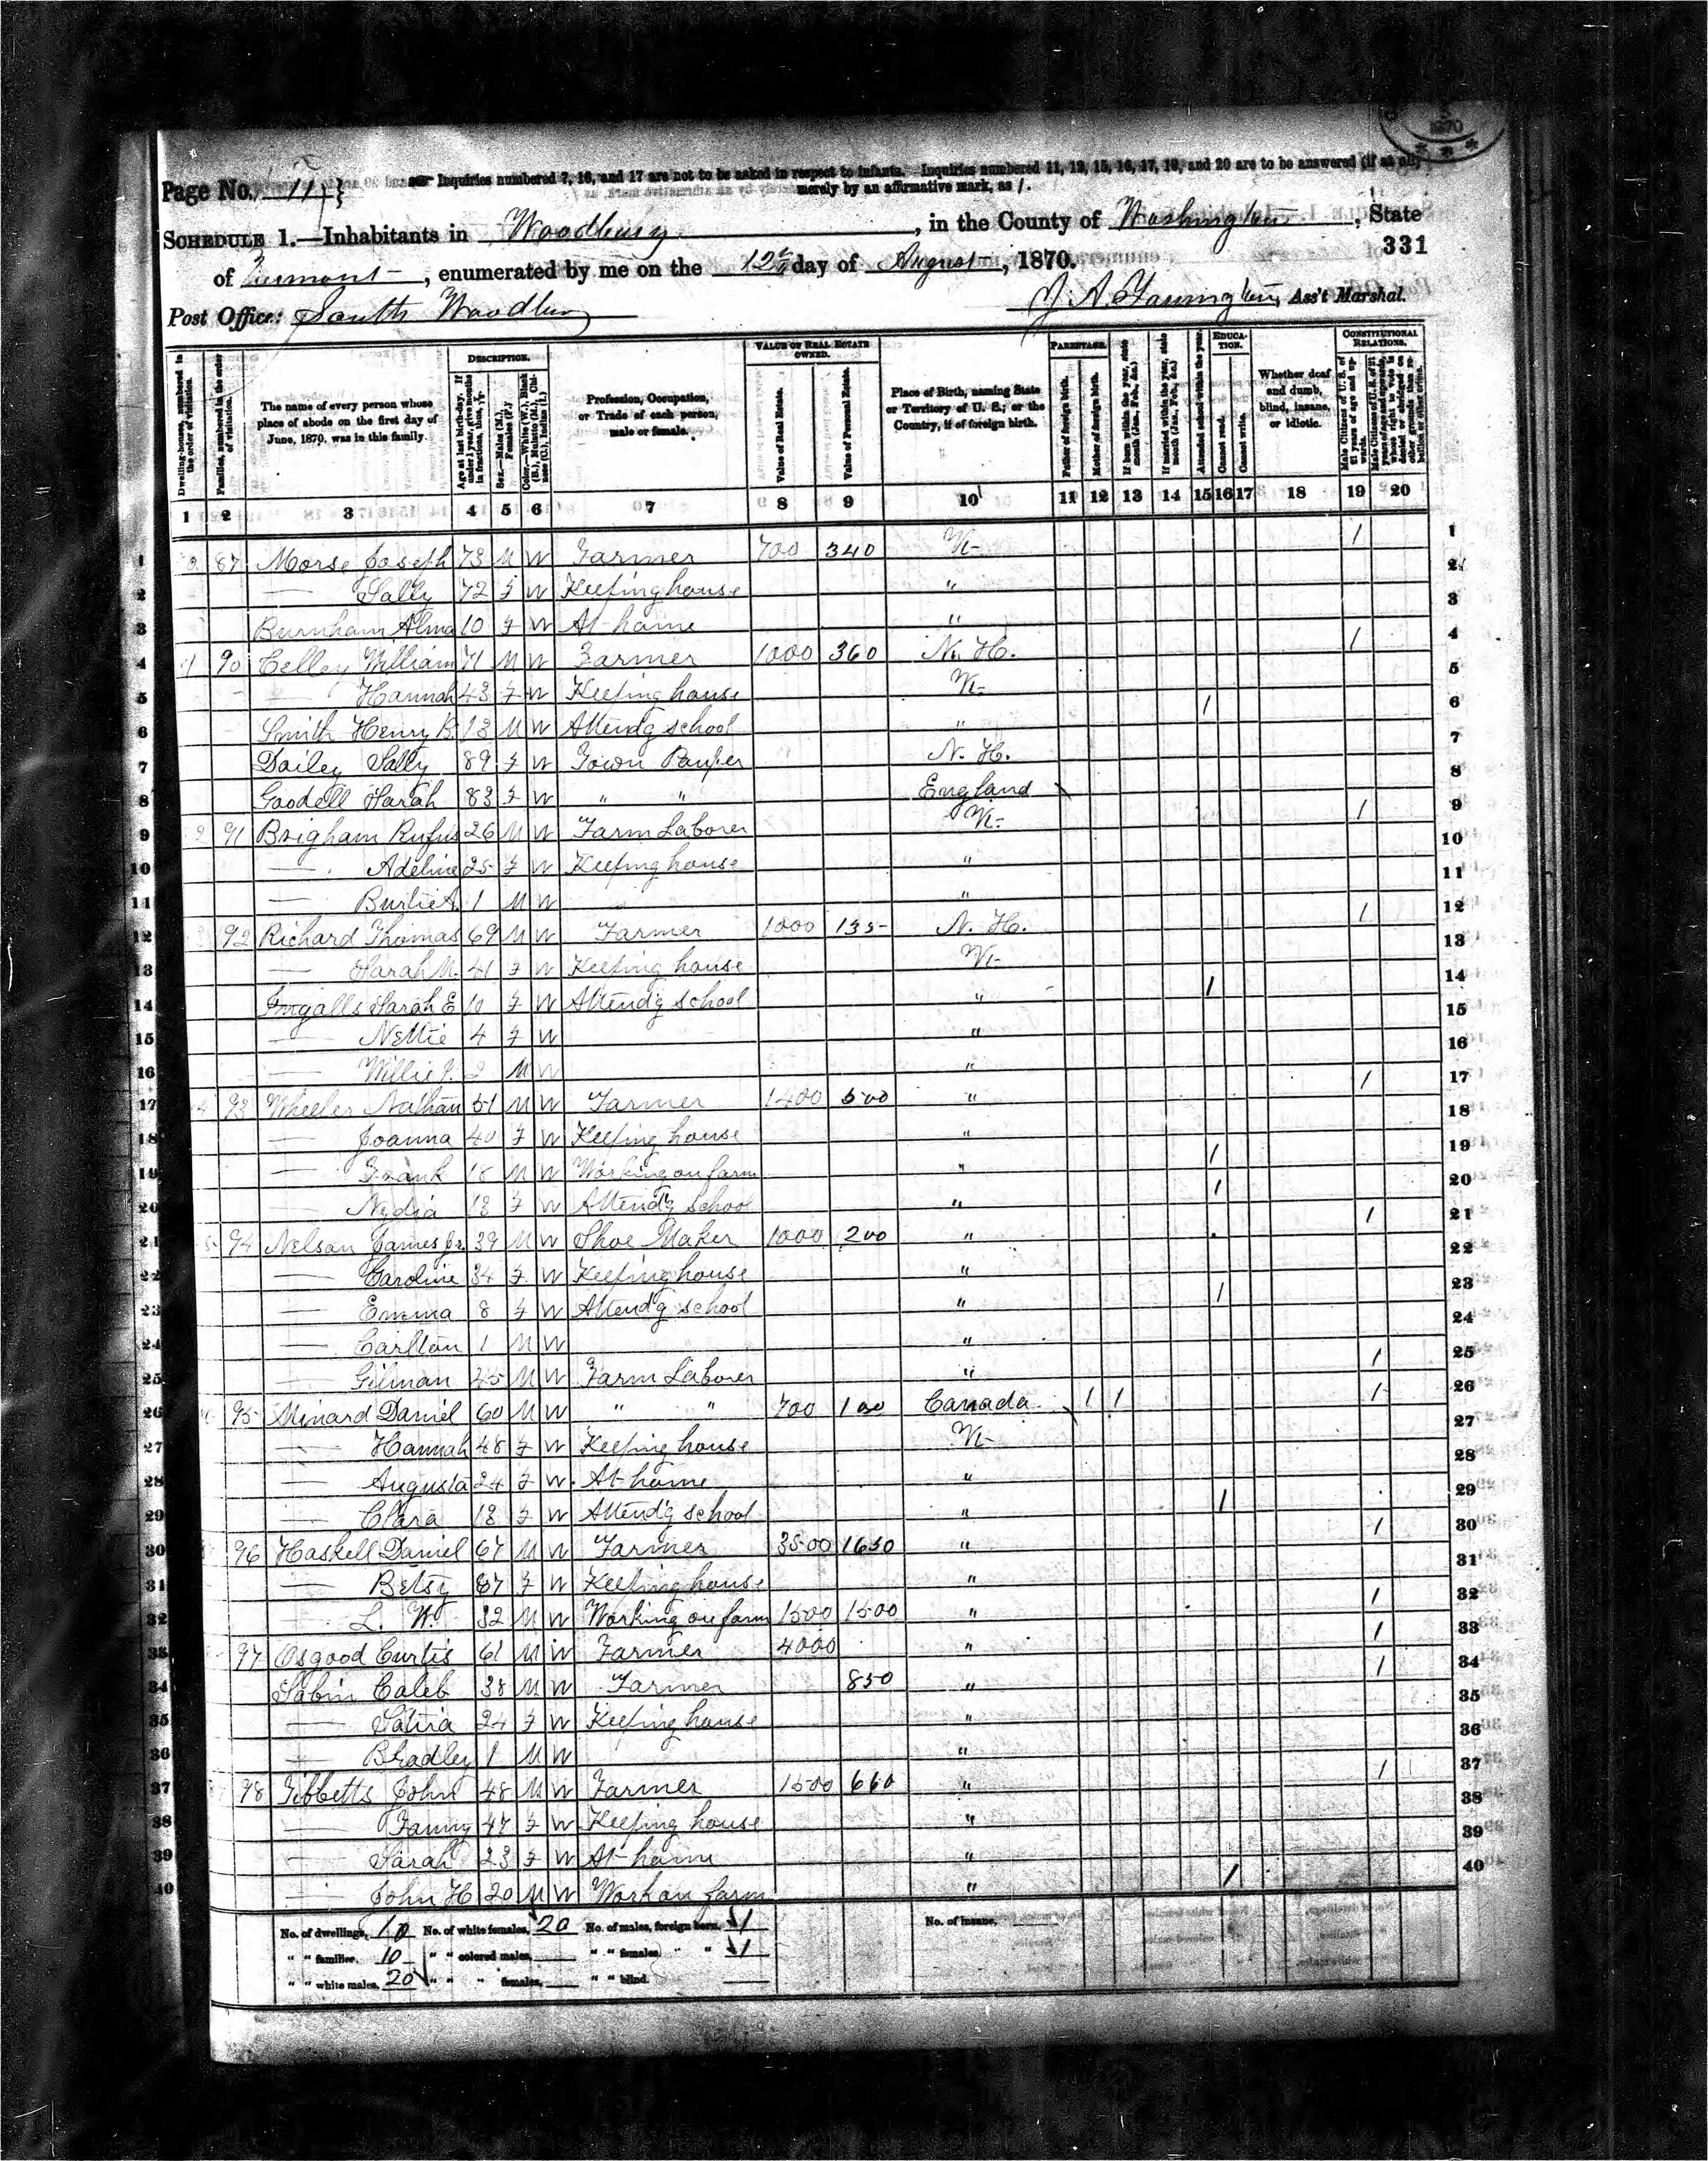 1870
Page No. 11 } Inquiries numbered 7, 16, and 17 are not to be asked in respect to infants. Inquiries numbered 11, 12, 15, 16, 17, 19, and 20 are to be answered (if at all)
merely by an affirmative mark, as /.
SCHEDULE 1.—Inhabitants in Woodbury, in the County of Washington, State
331
of Vermont, enumerated by me on the 12th day of August, 1870.
Post Office: South Woodbury
Ass't Marshal.
Dwelling-houses, numbered in the order of visitation.
Families, numbered in the order of visitation.
The name of every person whose place of abode on the first day of June, 1870, was in this family.
DESCRIPTION.
Age at last birth-day. If under 1 year, give months in fractions, thus,
Sex.—Males (M.), Females (F.)
Color.—White (W.), Black (B.), Mulatto (M.), Chinese (C.), Indian (I.)
Profession, Occupation, or Trade of each person, male or female.
VALUE OF REAL ESTATE OWNED.
Value of Real Estate.
Value of Personal Estate.
Place of Birth, naming State or Territory of U. S.; or the Country, if of foreign birth.
PARENTAGE.
Father of foreign birth.
Mother of foreign birth.
If born within the year, state month (Jan., Feb., &c.)
If married within the year, state month (Jan., Feb., &c.)
Attended school within the year.
EDUCATION.
Cannot read.
Cannot write.
Whether deaf and dumb, blind, insane, or idiotic.
CONSTITUTIONAL RELATIONS.
Male Citizens of U. S. of 21 years of age and upwards.
Male Citizens of U. S. of 21 years of age and upwards, whose right to vote is denied or abridged on other grounds than rebellion or other crime.
1 2 3 4 5 6 7 8 9 10 11 12 13 14 15 16 17 18 19 20
1 87 Morse Joseph 73 M W Farmer 700 340 Vt- / 1
2 — Sally 72 F W Keeping house " 2
3 Burnham Alma 10 F W At home " 3
4 90 Celley William 71 M W Farmer 1000 360 N. H. / 4
5 " Hannah 43 F W Keeping house Vt- 5
6 Smith Henry B. 13 M W Attend'g school " / 6
7 Dailey Sally 89 F W Town Pauper N. H. 7
8 Goodell Sarah 83 F W " " England \ 8
9 91 Brigham Rufus 26 M W Farm Laborer Vt- / 9
10 — Adeline 25 F W Keeping house " 10
11 — Burtie A. 1 M W " 11
12 92 Richard Thomas 69 M W Farmer 1000 135 N. H. / 12
13 — Sarah M. 41 F W Keeping house Vt- 13
14 Ingalls Sarah E 10 F W Attend'g school " / 14
15 — Nettie 4 F W " 15
16 — Willie J. 2 M W " 16
17 93 Wheeler Nathan 51 M W Farmer 1400 500 " / 17
18 — Joanna 40 F W Keeping house " 18
19 — Frank 18 M W Working on farm " / 19
20 — Nydia 13 F W Attend'g school " / 20
21 94 Nelson James Jr. 39 M W Shoe Maker 1000 200 " / 21
22 — Caroline 34 F W Keeping house " 22
23 — Emma 8 F W Attend'g school " / 23
24 — Carlton 1 M W " 24
25 — Gilman 45 M W Farm Laborer " / 25
26 95 Minard Daniel 60 M W " " 700 100 Canada / / / 26
27 — Hannah 48 F W Keeping house Vt- 27
28 — Augusta 24 F W At home " 28
29 — Clara 18 F W Attend'g school " / 29
30 96 Haskell Daniel 67 M W Farmer 3500 1650 " / 30
31 — Betsy 67 F W Keeping house " 31
32 L. W. 32 M W Working on farm 1500 1500 " / 32
33 97 Osgood Curtis 61 M W Farmer 4000 " / 33
34 Sabin Caleb 38 M W Farmer 850 " / 34
35 — 24 F W Keeping house " 35
36 — Bradley 1 M W " 36
37 98 Tibbetts John 48 M W Farmer 1500 660 " / 37
38 — Fanny 47 F W Keeping house " 38
39 — Sarah 23 F W At home " 39
40 — John H 20 M W Work on farm " / 40
No. of dwellings, 10 No. of white females, 20 No. of males, foreign born, 1 No. of insane,
" " families, 10 " " colored males, " " females, " " 1
" " white males, 20 " " " females, " " blind,